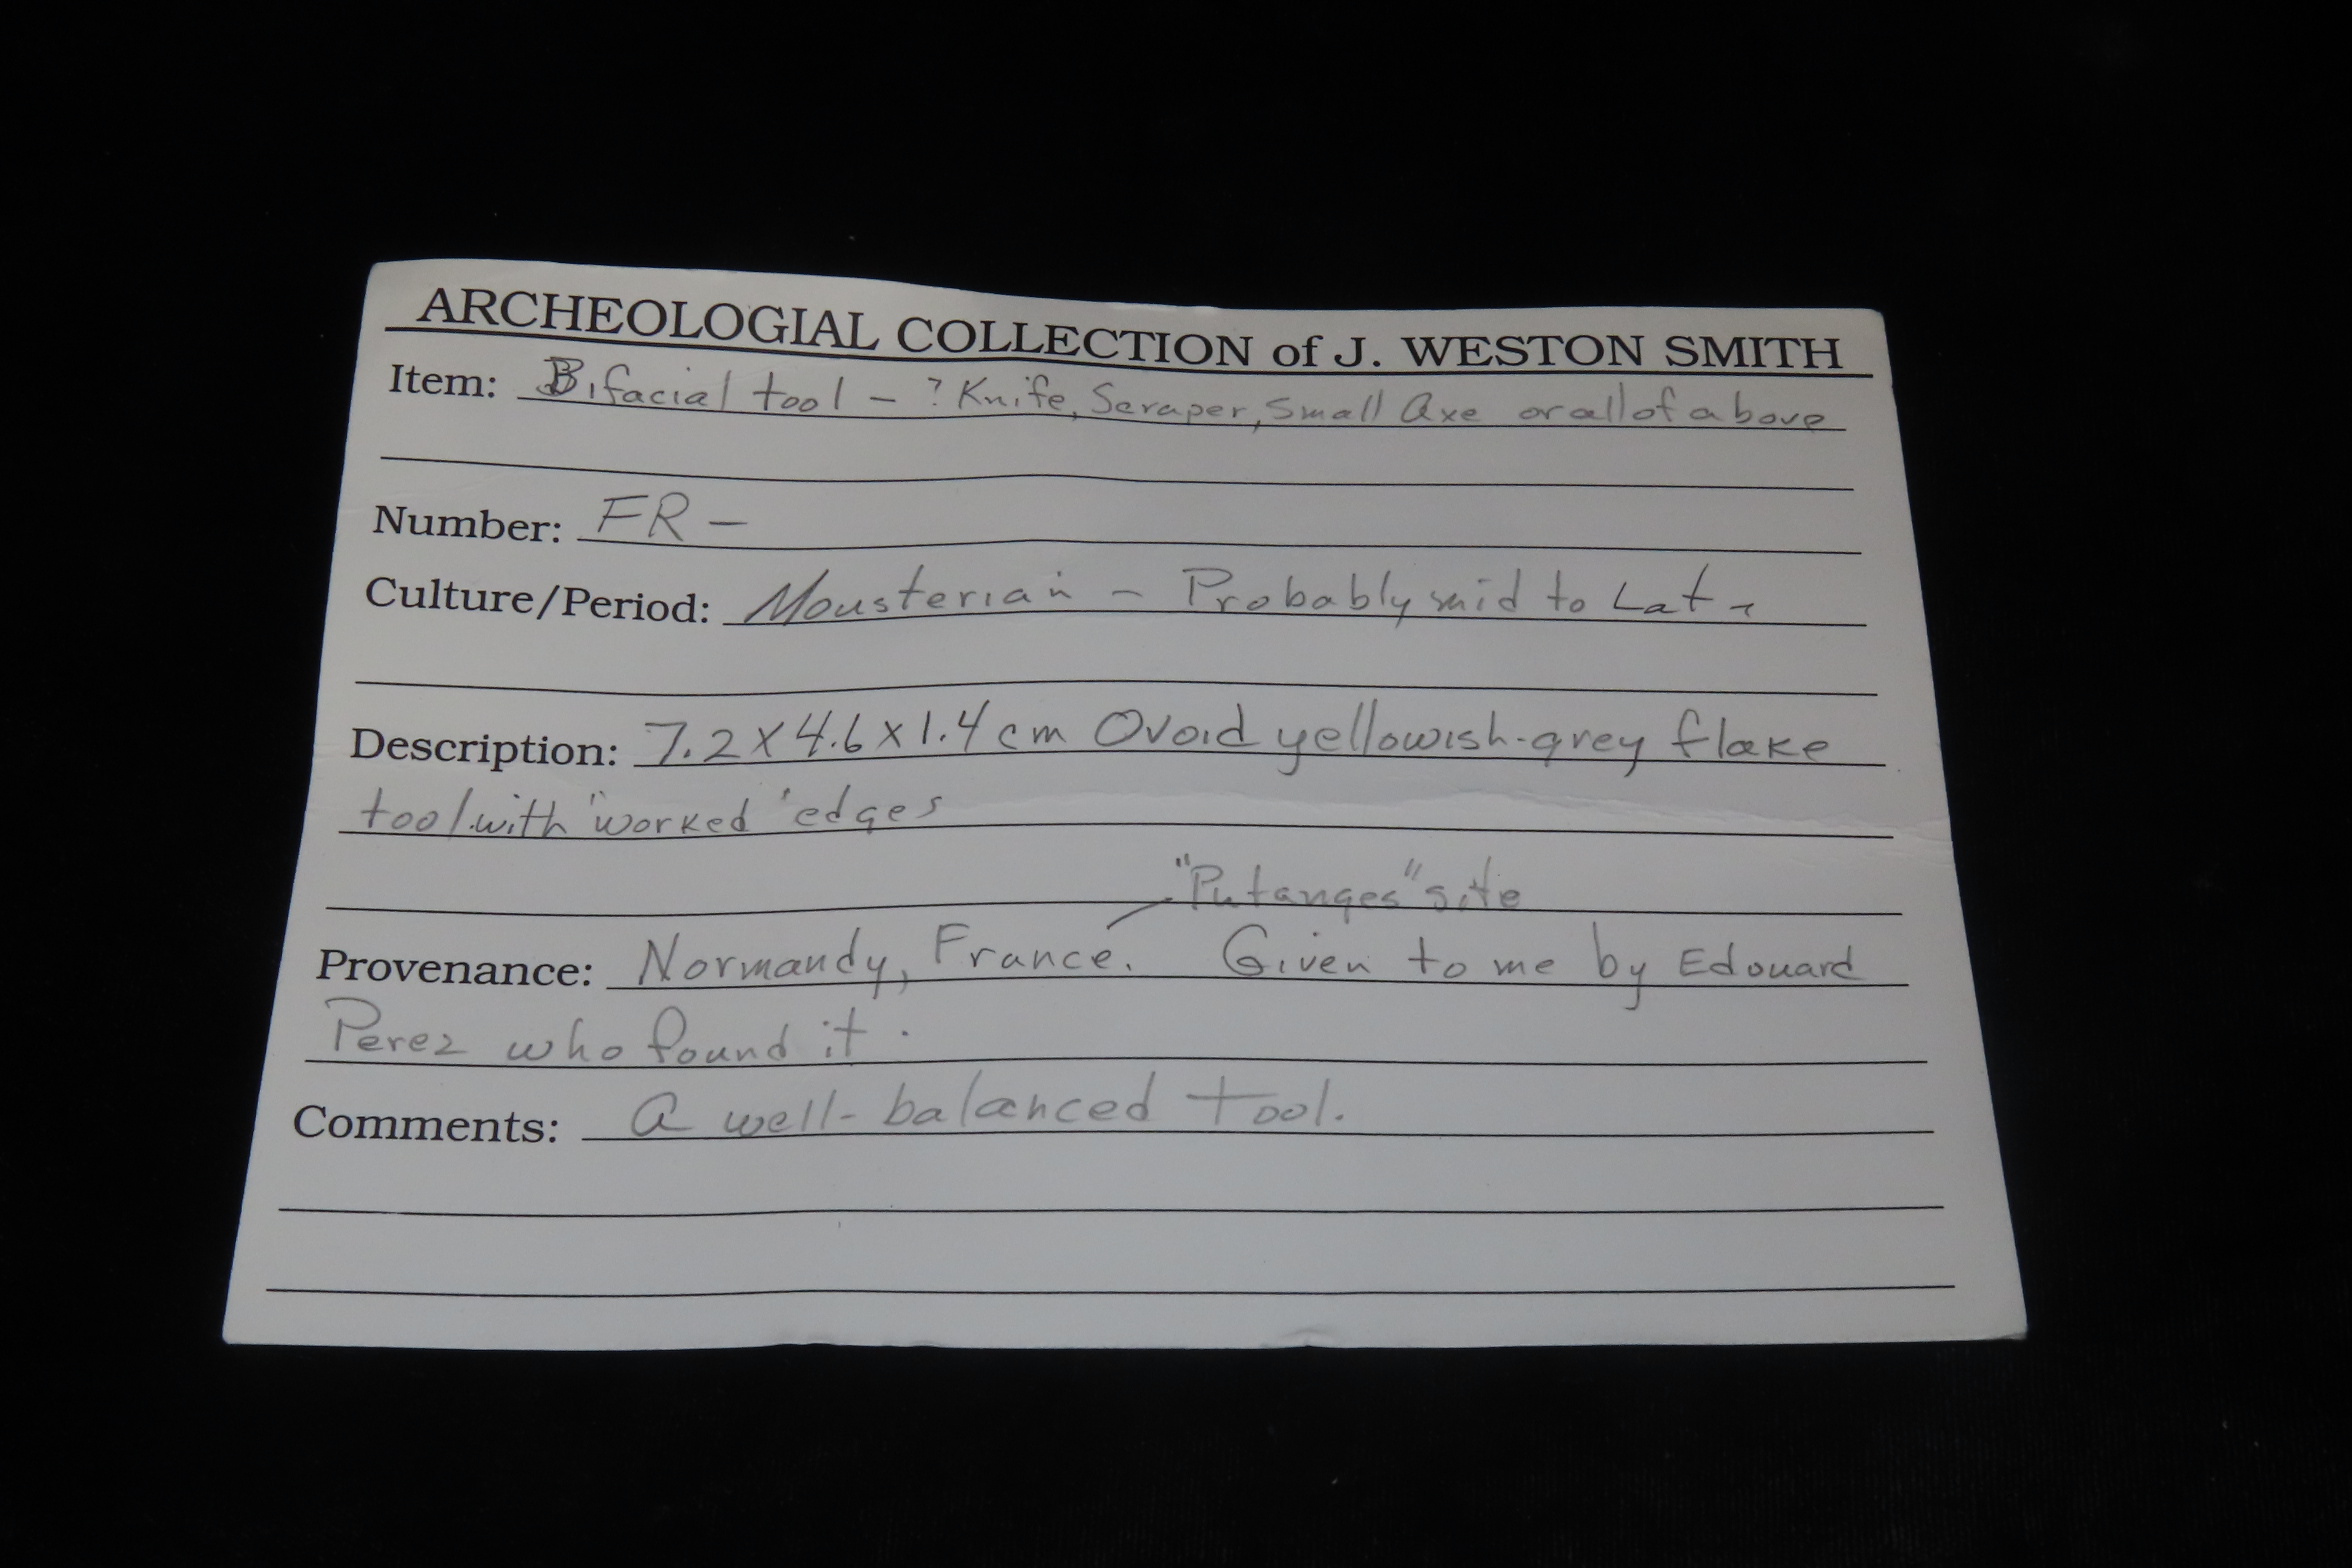 ARCHEOLOGIAL COLLECTION of J. WESTON SMITH
Item: Bifacial tool – ? Knife, Scraper, Small Axe or all of above
Number: FR –
Culture/Period: Mousterian – Probably mid to Late
Description: 7.2 X 4.6 X 1.4 cm Ovoid yellowish-grey flake
tool with "worked" edges
"Putanges" site
Provenance: Normandy, France. Given to me by Edouard
Perez who found it.
Comments: A well-balanced tool.